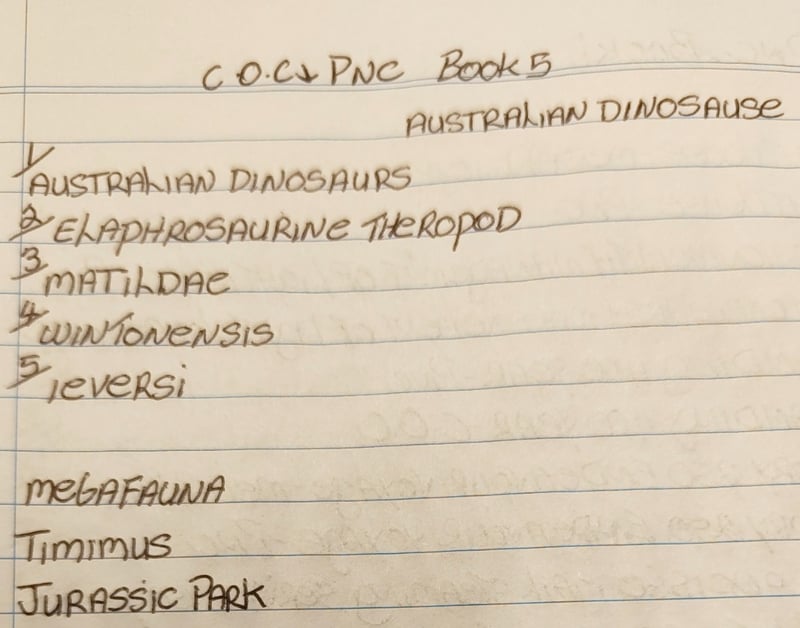 C O.C & PNC Book 5
AUSTRALIAN DINOSAUSE
1/ AUSTRALIAN DINOSAURS
2/ ELAPHROSAURINE THEROPOD
3/ MATILDAE
4/ WINTONENSIS
5/ IEVERSI
MEGAFAUNA
TIMIMUS
JURASSIC PARK